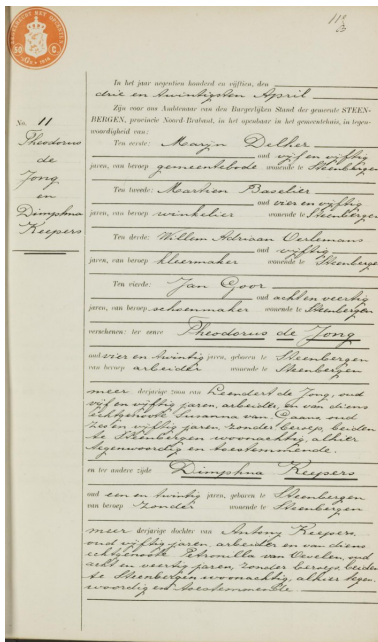 110
3
50
In het jaar negentien honderd en vijftien, den
drie en twintigsten April
Zijn voor ons Ambtenaar van den Burgerlijken Stand der gemeente STEEN-
BERGEN, provincie Noord-Brabant, in het openbaar in het gemeentehuis, in tegen-
woordigheid van:
No. 11
Theodorus
de
Jong
en
Dimphna
Keepers
Ten eerste: Marijn Delher
oud vijf en vijftig
jaren, van beroep gemeentebode wonende te Steenbergen
Ten tweede: Martien Baselier
oud vier en vijftig
jaren, van beroep winkelier wonende te Steenbergen
Ten derde: Willem Adriaan Oerlemans
oud vijftig
jaren, van beroep kleermaker wonende te Steenbergen
Ten vierde: Jan Goor
oud acht en veertig
jaren, van beroep schoenmaker wonende te Steenbergen
verschenen: ter eenre Theodorus de Jong
oud vier en twintig jaren, geboren te Steenbergen
van beroep arbeider wonende te Steenbergen
meer derjarige zoon van Leendert de Jong, oud
vijf en vijftig jaren, arbeider, en van diens
echtgenoote Susanna van Gaans oud
zes en vijftig jaren, zonder beroep, beiden
te Steenbergen woonachtig, alhier
tegenwoordig en toestemmende.
en ter andere zijde Dimphna Keepers
oud een en twintig jaren, geboren te Steenbergen
van beroep zonder wonende te Steenbergen
meer derjarige dochter van Antony Keepers,
oud vijftig jaren, arbeider en van diens
echtgenoote Petronilla van Oevelen, oud
acht en veertig jaren, zonder beroep beiden
te Steenbergen woonachtig, alhier tegen-
woordig en toestemmende